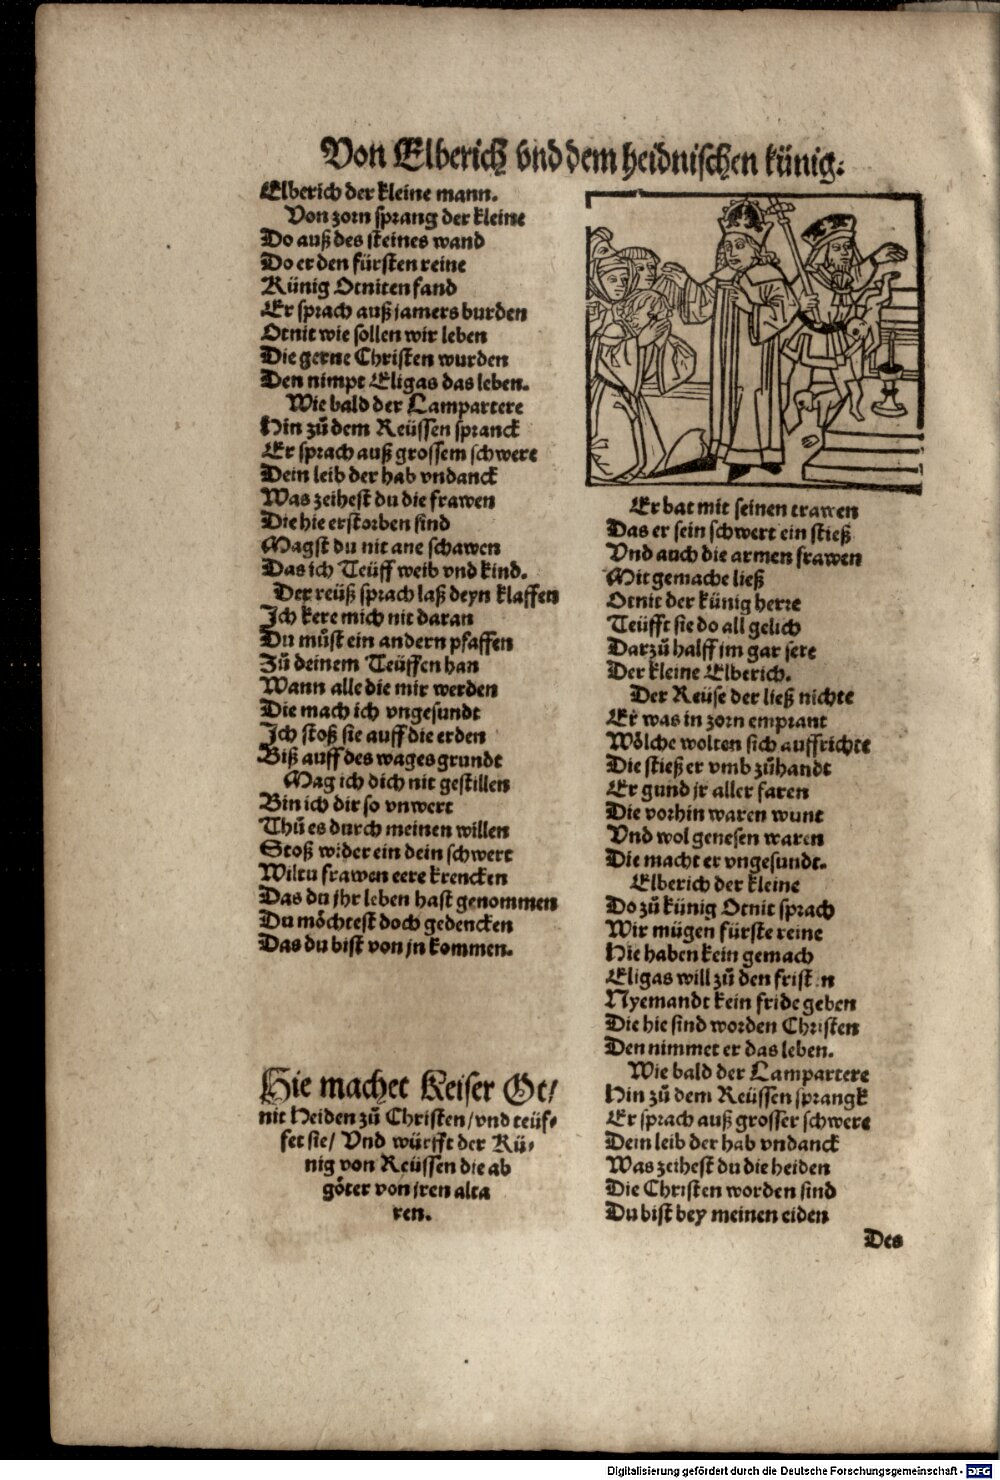 Von Elberich vnd dem heidnischen künig.
Elberich der kleine mann.
Von zorn sprang der kleine
Do auß des steines wand
Do er den fürsten reine
Künig Otniten fand
Er sprach auß jamers burden
Otnit wie sollen wir leben
Die gerne Christen wurden
Den nimpt Eligas das leben.
Wie bald der Lampartere
Hin zů dem Reüssen spranck
Er sprach auß grossem schwere
Dein leib der hab vndanck
Was zeihest du die frawen
Die hie erstorben sind
Magst du nit ane schawen
Das ich Teüff weib vnd kind.
Der reüß sprach laß deyn klaffen
Ich kere mich nit daran
Du můst ein andern pfaffen
Zů deinem Teüffen han
Wann alle die mir werden
Die mach ich vngesundt
Ich stoß sie auff die erden
Biß auff des wages grundt
Mag ich dich nit gestillen
Bin ich dir so vnwert
Thů es durch meinen willen
Stoß wider ein dein schwert
Wiltu frawen eere krencken
Das du jhr leben hast genommen
Du möchtest doch gedencken
Das du bist von jn kommen.
Hie machet Keiser Ot/
nit Heiden zů Christen/vnd teüf⸗
fet sie/ Vnd würfft der Kü⸗
nig von Reüssen die ab
göter von jren alta
ren.
Er bat mit seinen trawen
Das er sein schwert ein stieß
Vnd auch die armen frawen
Mit gemache ließ
Otnit der künig herre
Teüfft sie do all gelich
Darzů halff jm gar sere
Der kleine Elberich.
Der Reüse der ließ nichte
Er was in zorn emprant
Wölche wolten sich auffrichte
Die stieß er vmb zůhandt
Er gund jr aller faren
Die vorhin waren wunt
Vnd wol genesen waren
Die macht er vngesundt.
Elberich der kleine
Do zů künig Otnit sprach
Wir mügen fürste reine
Hie haben kein gemach
Eligas will zů den fristen
Nyemandt kein fride geben
Die hie sind worden Christen
Den nimmet er das leben.
Wie bald der Lampartere
Hin zů dem Reüssen sprangk
Er sprach auß grosser schwere
Dein leib der hab vndanck
Was zeihest du die heiden
Die Christen worden sind
Du bist bey meinen eiden
Des
Digitalisierung gefördert durch die Deutsche Forschungsgemeinschaft - DFG